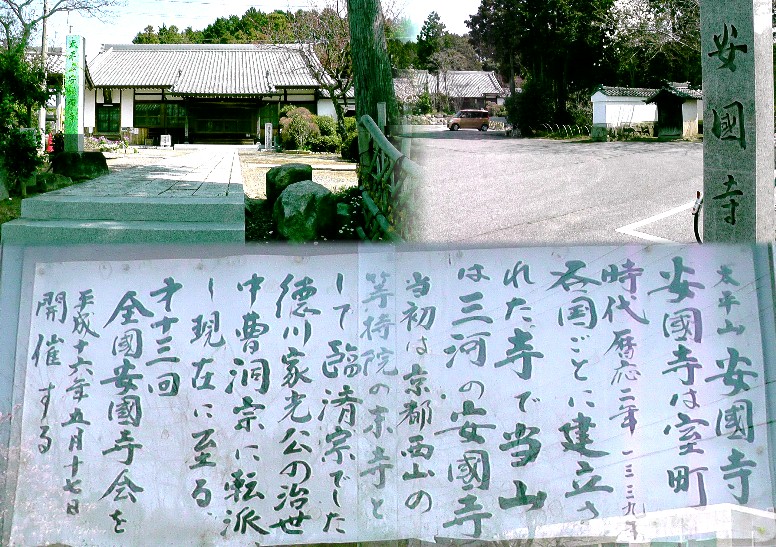 安國寺
太平山 安國寺
安國寺は室町
時代暦応二年 一三三九年
各国ごとに建立さ
れた寺で当山
は三河の安國寺
当初は京都西山の
等持院の末寺と
して臨済宗でした
徳川家光公の治世
中曹洞宗に転派
し現在に至る
才十三回
全國安國寺会を
平成十六年五月十七日
開催する